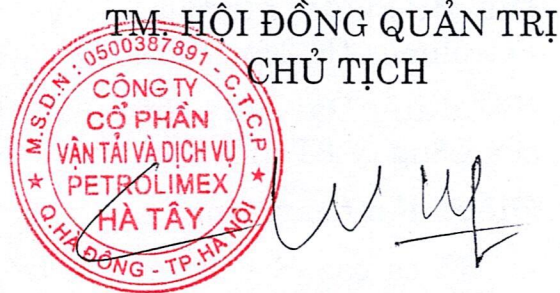 TM. HỘI ĐỒNG QUẢN TRỊ
CHỦ TỊCH
M.S.D.N: 0500387891 - C.T.C.P
CÔNG TY
CỔ PHẦN
VẬN TẢI VÀ DỊCH VỤ
PETROLIMEX
HÀ TÂY
Q.HÀ ĐÔNG - TP.HÀ NỘI